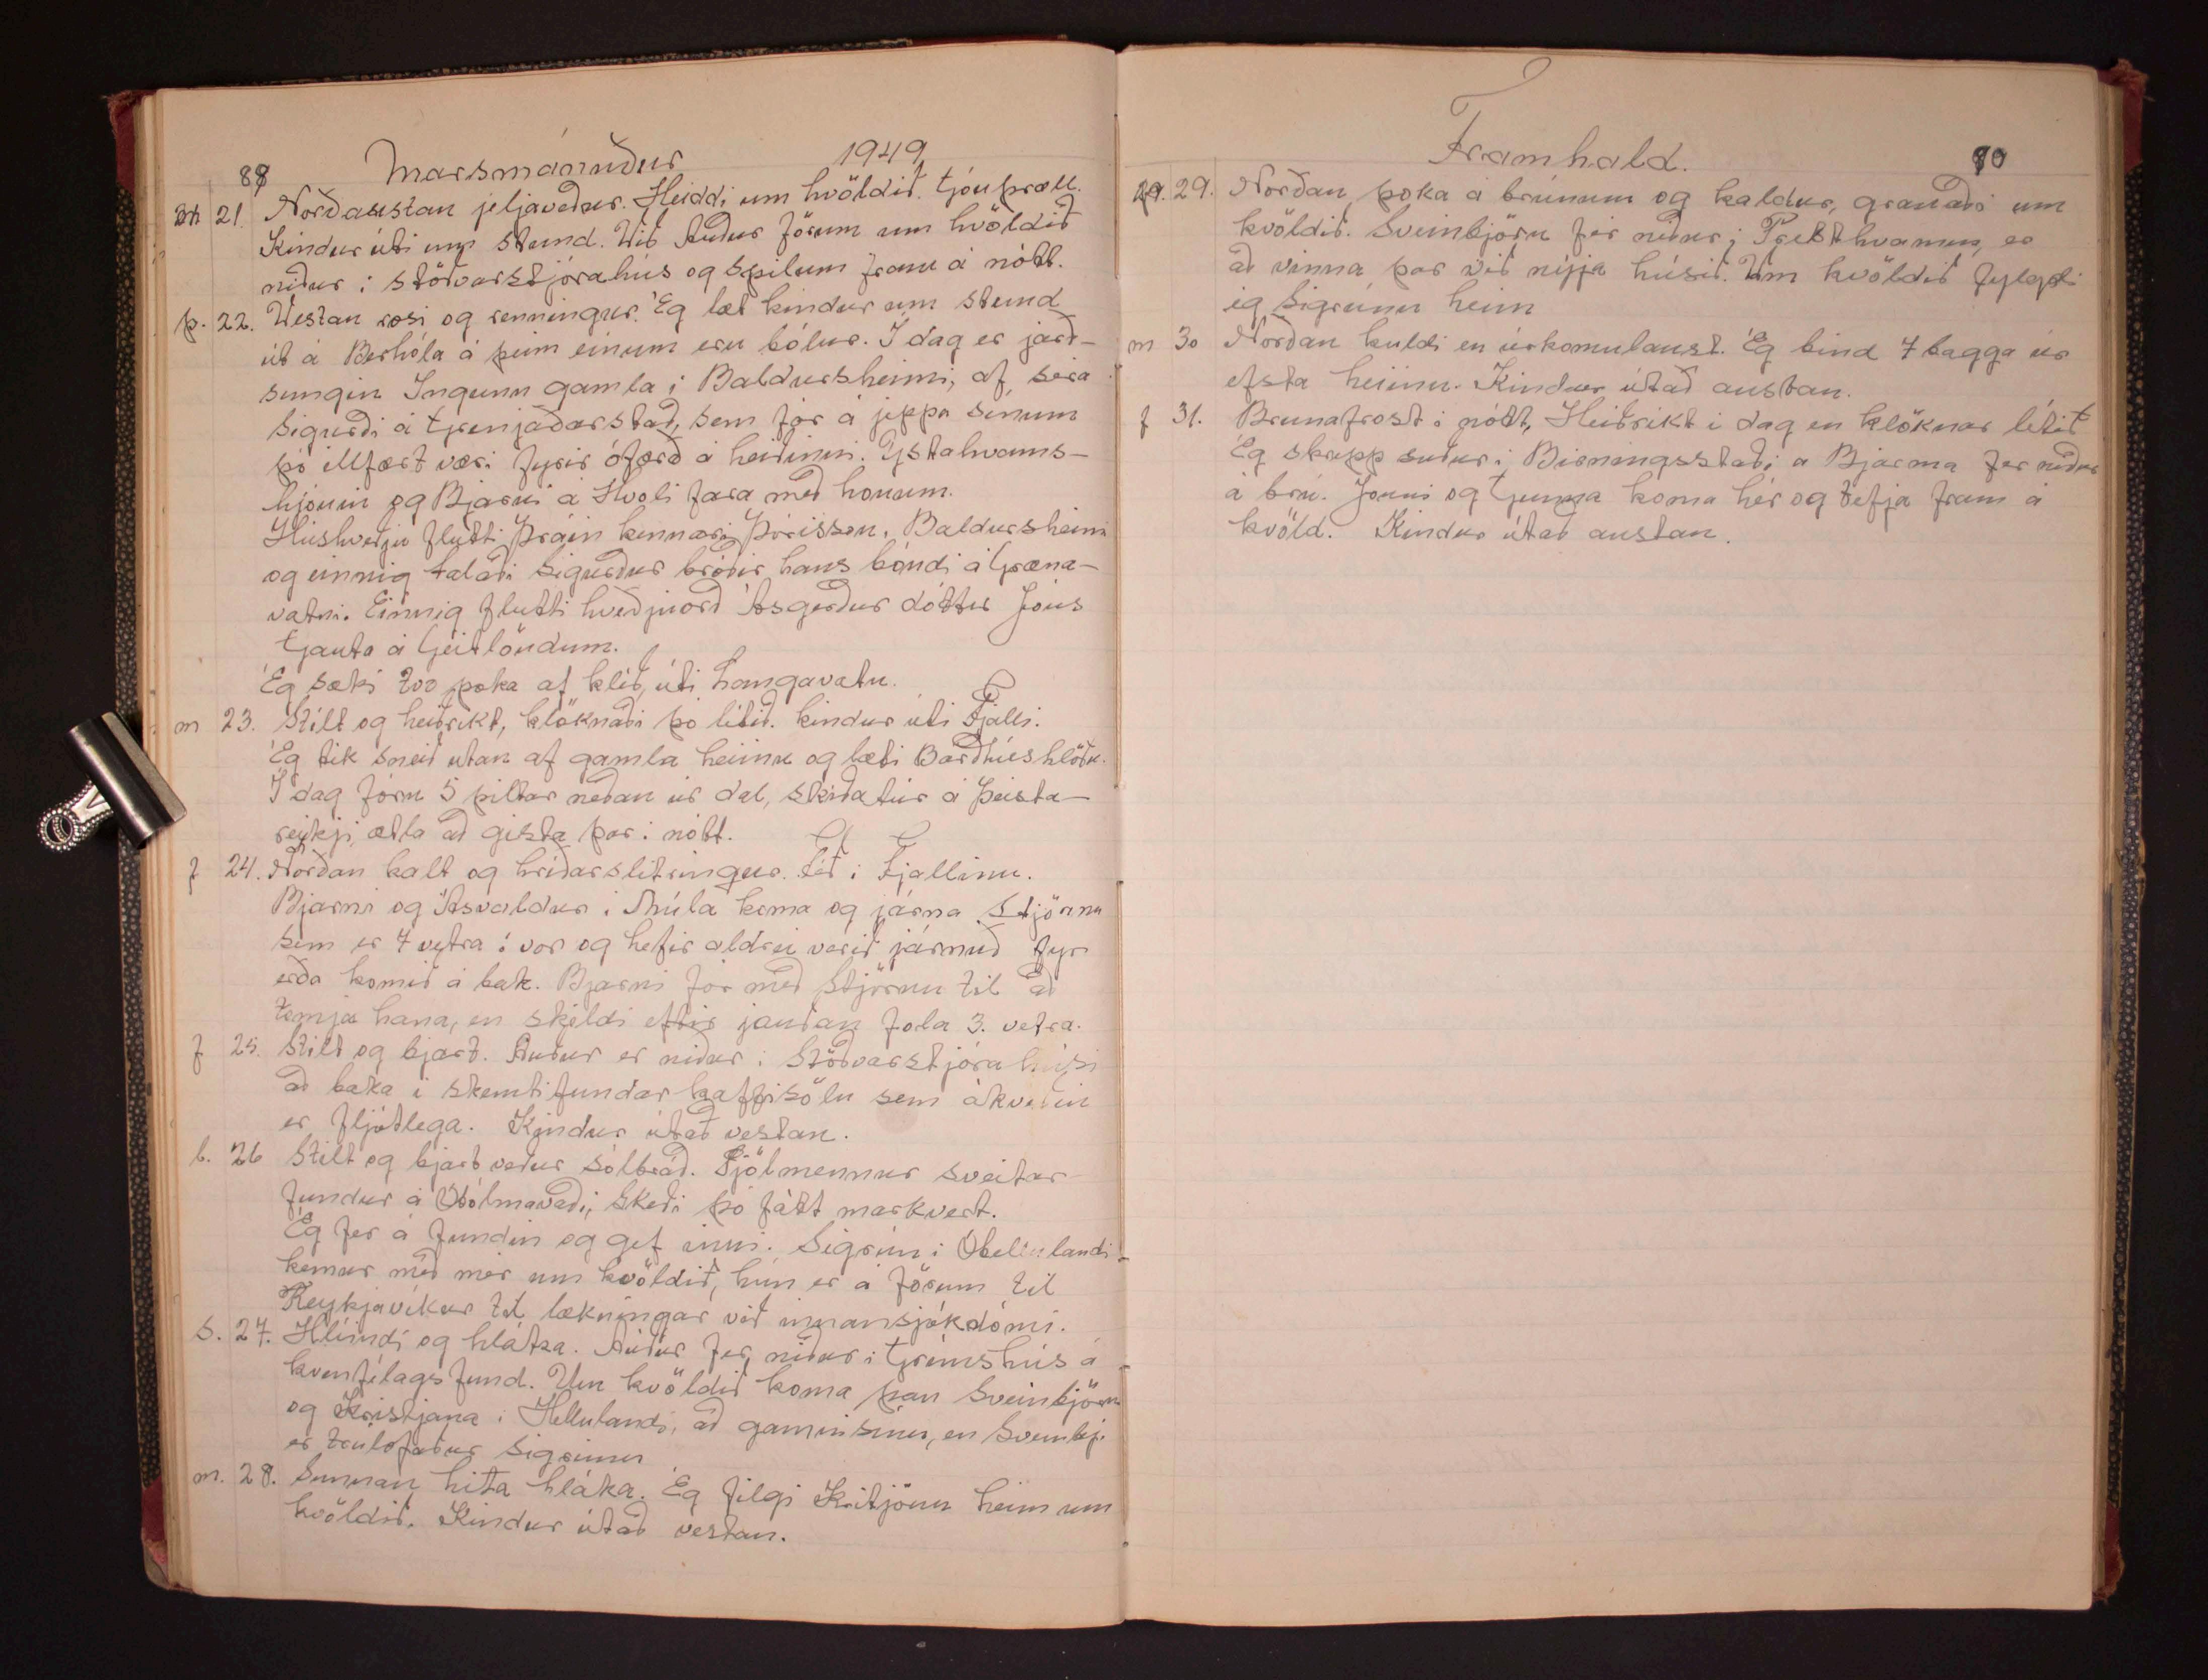 88 Marsmánuður 1949
m 21. Norðaustan jeljaveður. Heiddi um kvöldið. Gjóuþræll.
Kindur úti um stund. Við Auður förum um kvöldið
niður í stöðvarstjórahús og spilum fram á nótt.
þ. 22. Vestan rosi og renningur. Ég læt kindur um stund
út á Berhóla á þeim einum eru bólur. Í dag er jarð-
sungin Ingunn gamla í Baldursheimi, af séra
Sigurði á Grenjaðarstað, sem fór á jeppa sínum
þó illfært væri fyrir ófærð á heiðinni. Ystahvams-
hjónin og Bjarni á Hvoli fara með honum.
Húskveðju flutti Þráin kennari Þórisson, Baldursheimi
og einnig talaði Sigurður bróðir hans bóndi á Græna-
vatni. Einnig flutti kveðjuorð Ásgerður dóttir Jóns
Gauta á Gautlöndum.
Ég sæki tvo poka af klíð úti Langavatn.
m 23. Stilt og heiðríkt, klöknaði þó lítið. kindur úti Fjalli.
Ég tek sneið utan af gamla heiinu og læti Barðhúshlöðu.
Í dag fóru 5 piltar neðan úr dal, skíðatúr á Þeista-
reykji, ætla að gista þar í nótt.
f 24. Norðan kalt og hríðarslitringur. Féð í Fjallinu.
Bjarni og Ásvaldur í Múla koma og járna Stjörnu
sem er 7 vetra í vor og hefir aldrei verið járnuð fyr
eða komið á bak. Bjarni fór með Stjörnu til að
temja hana, en skyldi eftir jarðan fola 3. vetra.
f 25. Stilt og bjart. Auður er niður í Stöðvarstjóra húsi
að baka í skemtifundar kaffisölu sem ákveðin
er fljótlega. Kindur útað vestan.
l. 26 Stilt og bjart veður sólbráð. Fjölmennur sveitar
fundur á Hólmavaði, skeði þó fátt markvert.
Ég fer á fundin og gef inni. Sigrún í Hellulandi
kemur með mér um kvöldið, hún er á förum til
Reykjavíkur til lækningar við innansjúkdómi.
s. 27. Hlíindi og hláka. Auður fer niður í Grímshús á
kvenfélagsfund. Um kvöldið koma þau Sveinbjörn
og Kristjana í Hellulandi, að gamni sínu, en Sveinbj.
er trúlofaður Sigrúnu
m. 28. Sunnan hita hláka. Ég filgi Kristjönu heim um
kvöldið. Kindur útað vestan.
Framhald. 90
þ. 29. Norðan þoka á brúnum og kaldur, granaði um
kvöldið. Sveinbjörn fer niður í Presthvamm, er
að vinna þar við nýja húsið. Um kvöldið fylgdi
ég Sigrúnu heim
m 30 Norðan kuldi en úrkomulaust. Ég bind 7 bagga úr
efsta heiinu. Kindur útað austan.
f 31. Brunafrost í nótt, Heiðríkt í dag en klöknar lítið
Ég skrepp suður í Birningsstaði a Bjarma fer niður
á brú. Jonni og Gunna koma hér og tefja fram á
kvöld. Kindur útað austan.